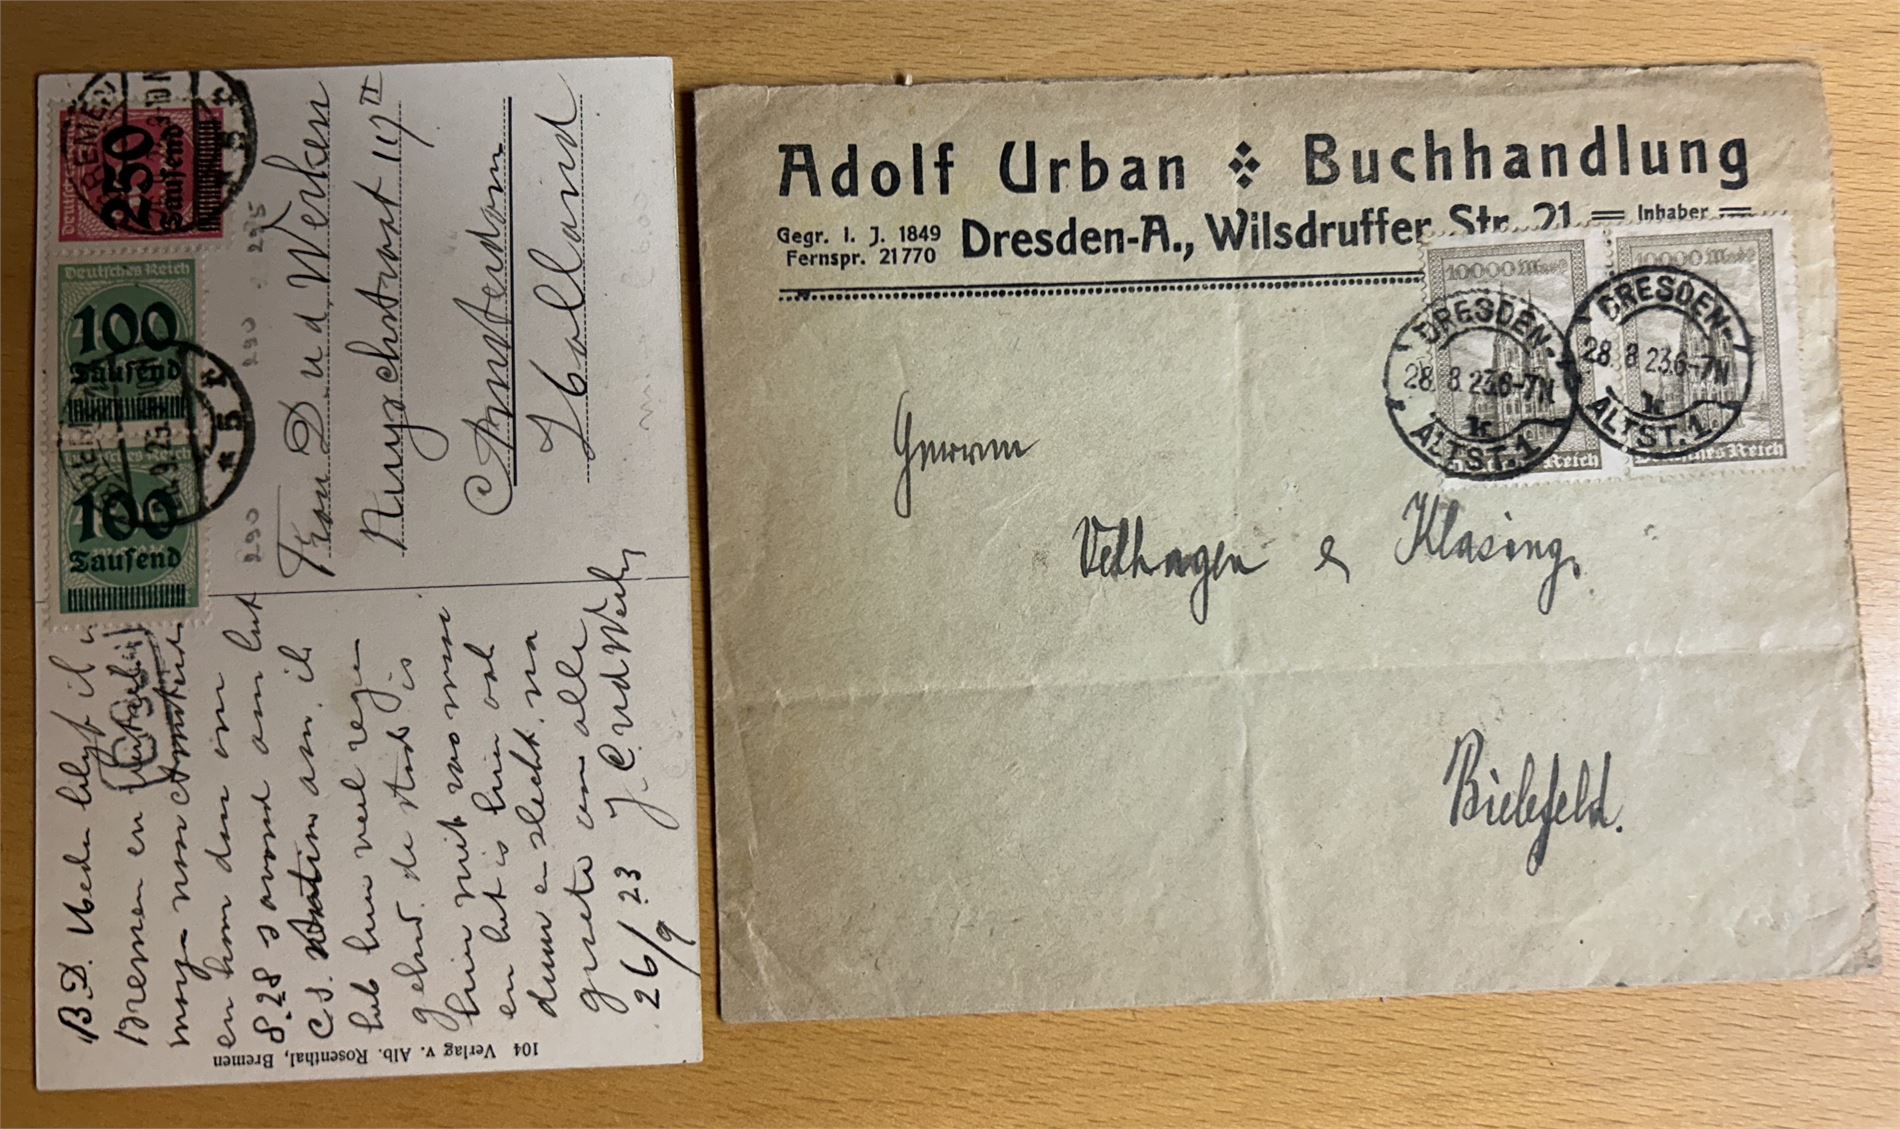 250
Tausend
Deutsches Reich
100
Tausend
100
Tausend
BREMEN
Frau D. v. d. Werken
Amsterdam
Holland
290 290 295
B.D. Heden blijf ik
Bremen en
morgen Amsterdam
en kom dan om
8.28 s avond aan het
C.S. Station aan, ik
heb hier veel regen
gehad. de stad is
hier niet zoo
en het is hier ook
duur en slecht. na
groete aan alle
J. C. v d Werken
26/9 23
104 Verlag v. Alb. Rosenthal, Bremen
Adolf Urban Buchhandlung
Gegr. i. J. 1849
Fernspr. 21770
Dresden-A., Wilsdruffer Str. 21
Inhaber
10000 Mark
10000 Mark
DRESDEN-
28.8.23.6-7N
ALTST. 1
DRESDEN-
28.8.23.6-7N
ALTST. 1
Deutsches Reich
Herren
Velhagen & Klasing,
Bielefeld.